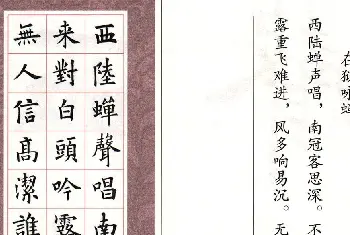 西陸蟬聲唱南
來對白頭吟露
無人信高潔誰
在狱咏蝉
西陆蝉声唱，南冠客思深。不
露重飞难进，风多响易沉。无